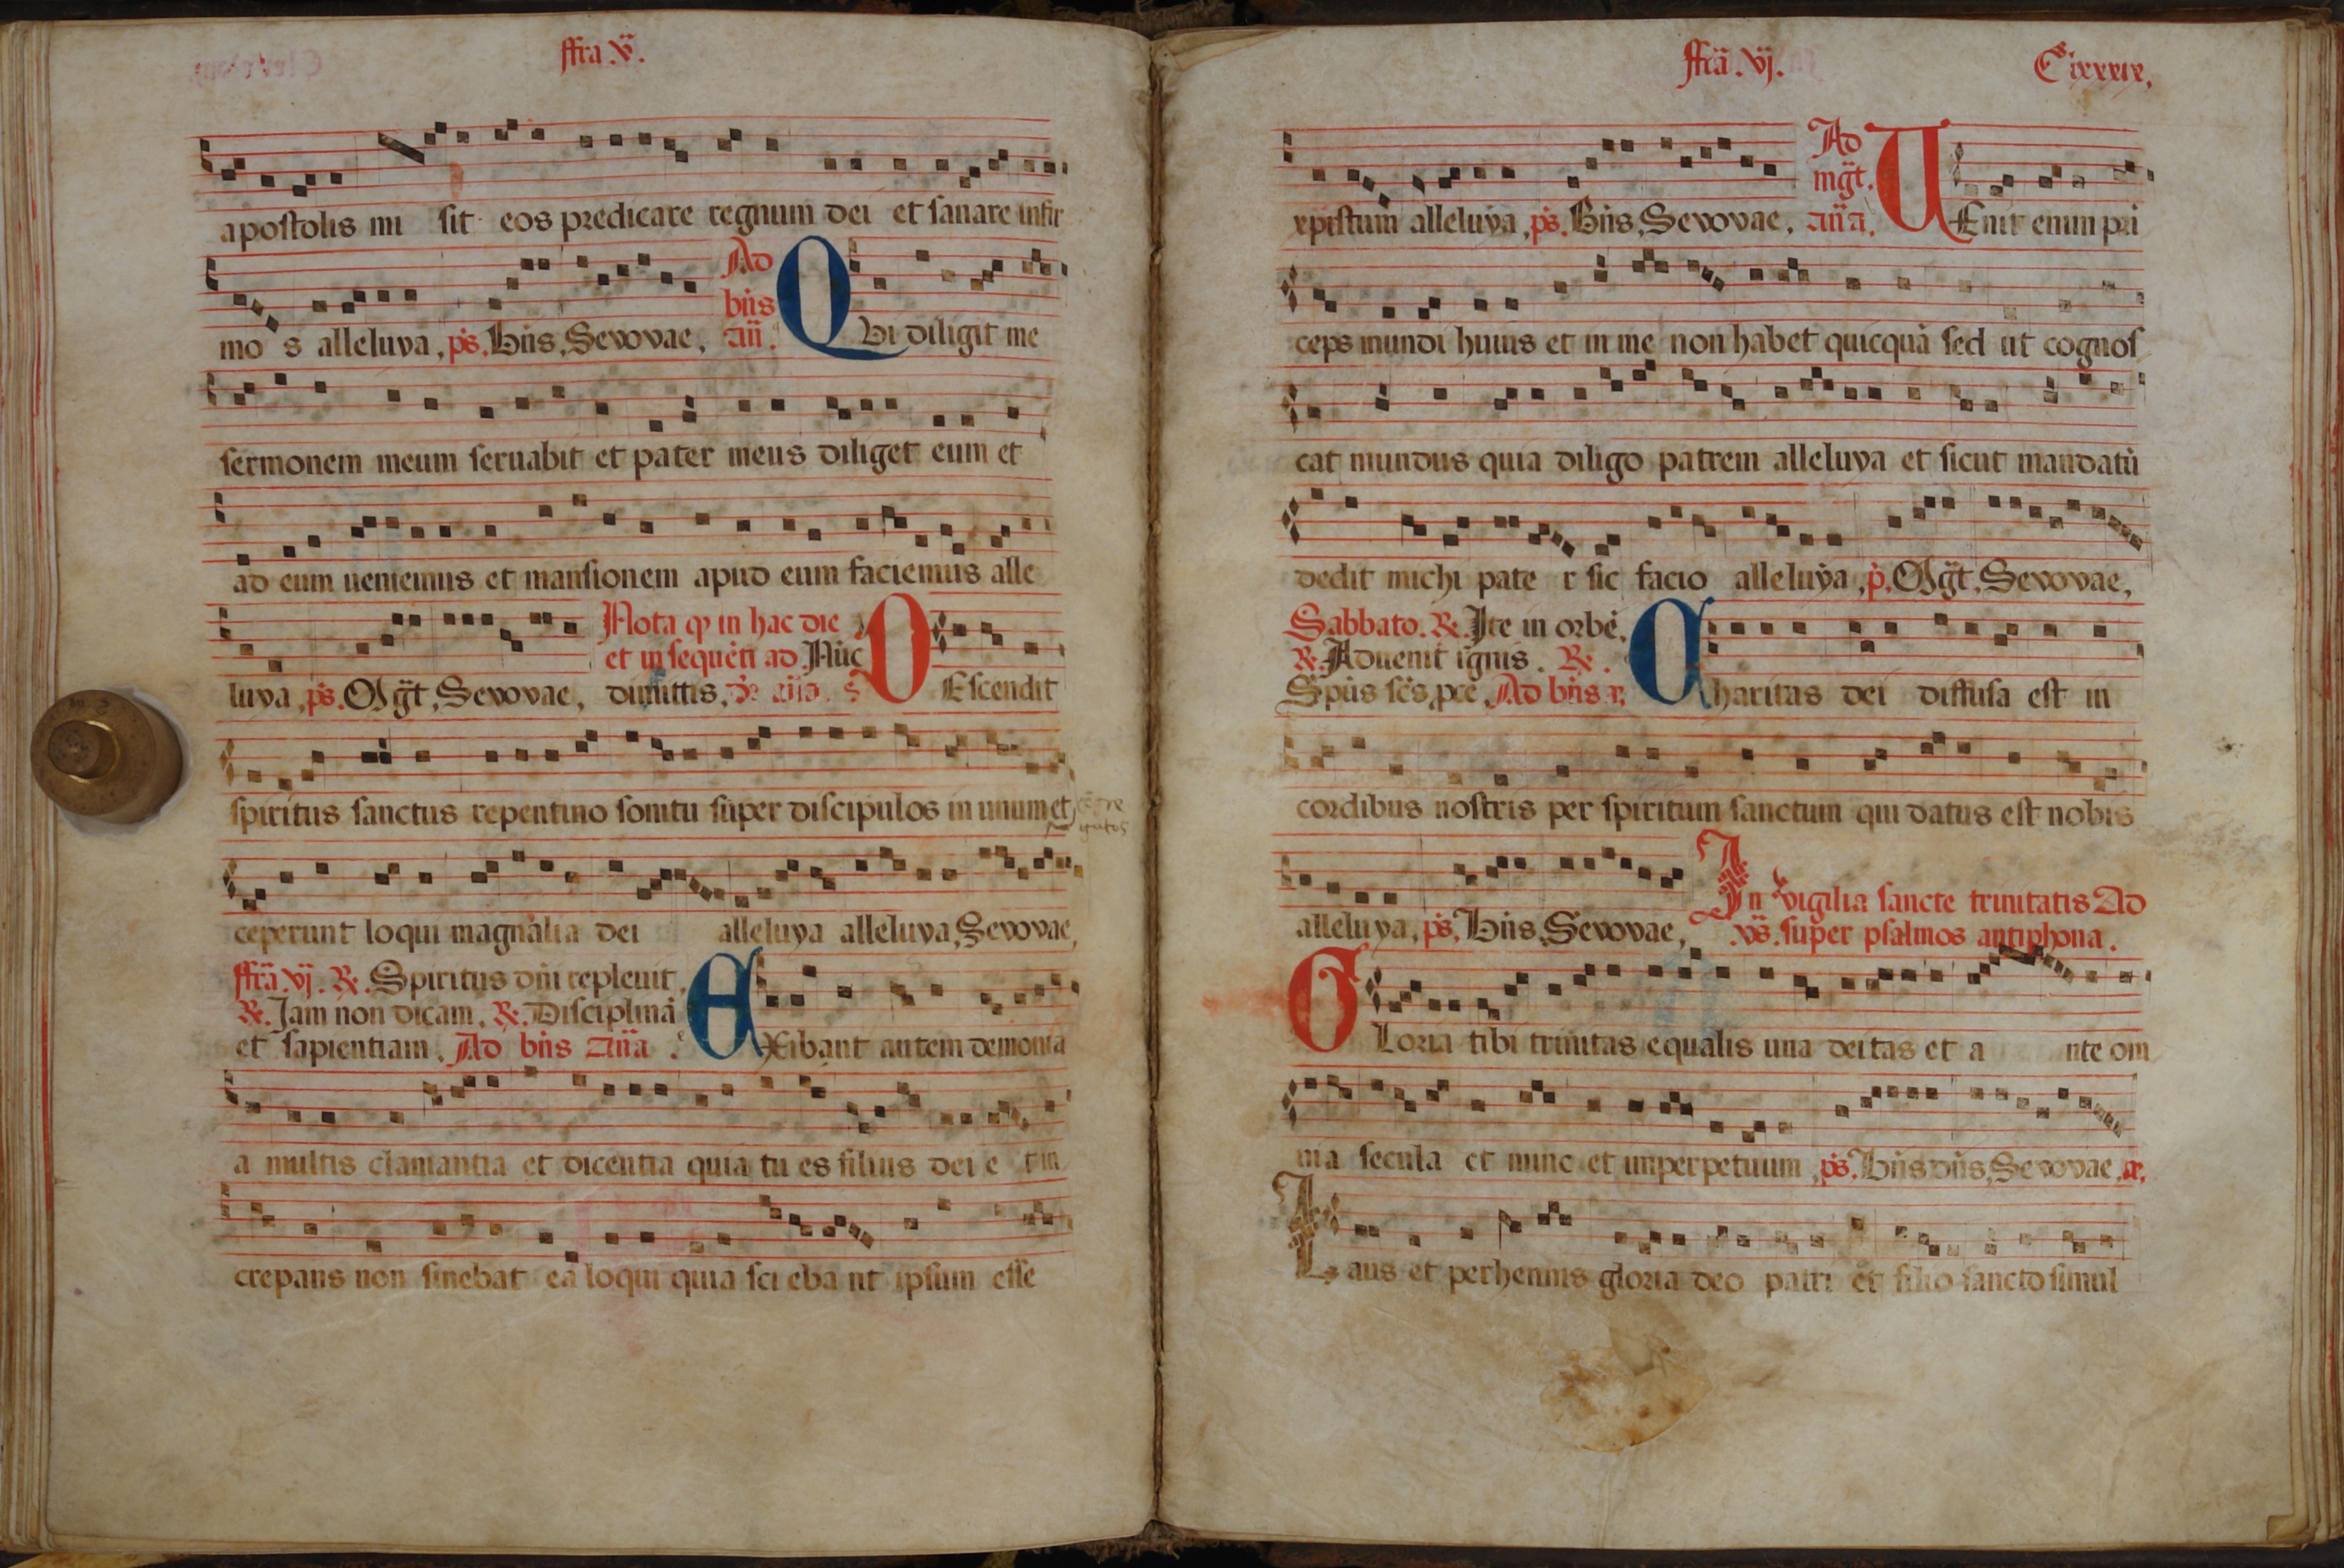 ffra .v.
apostolis mi sit eos predicare regnum dei et sanare infir
mo s alleluya, ps. Bñs, Sevovae, Ad bñs añ. Qvi diligit me
sermonem meum seruabit et pater meus diliget eum et
ad eum ueniemus et mansionem apud eum faciemus alle
luya, ps. Mgt, Sevovae, Nota q in hac die
et in sequēti ad Nūc
dimittis, DEscendit
spiritus sanctus repentino sonitu super discipulos in unum et
ceperunt loqui magnalia dei alleluya alleluya, Sevovae,
ffrā .vj. R. Spiritus dñi repleuit,
R. Jam non dicam, R. Disciplinā
et sapientiam, Ad bñs añā. EXibant autem demonia
a multis clamantia et dicentia quia tu es filius dei e t in
crepans non sinebat ea loqui quia sci eba nt ipsum esse
ffrā .vj. Cixxxix.
xpistum alleluya, ps. Bñs, Sevovae, Ad mgt. añā. UEnit enim pri
ceps mundi huius et in me non habet quicquā sed ut cognos
cat mundus quia diligo patrem alleluya et sicut mandatū
dedit michi pate r sic facio alleluya, p. Mgt, Sevovae,
Sabbato. R. Ite in orbē,
R. Aduenit ignis. R.
Spūs scs, pce, Ad bñs a, Charitas dei diffusa est in
cordibus nostris per spiritum sanctum qui datus est nobis
alleluya, ps. Bñs, Sevovae, In vigilia sancte trinitatis Ad
vs. super psalmos antiphona.
GLoria tibi trinitas equalis una deitas et a nte om
nia secula et nunc et imperpetuum, ps. Bñs dñs, Sevovae, a,
Laus et perhennis gloria deo patri et filio sancto simul